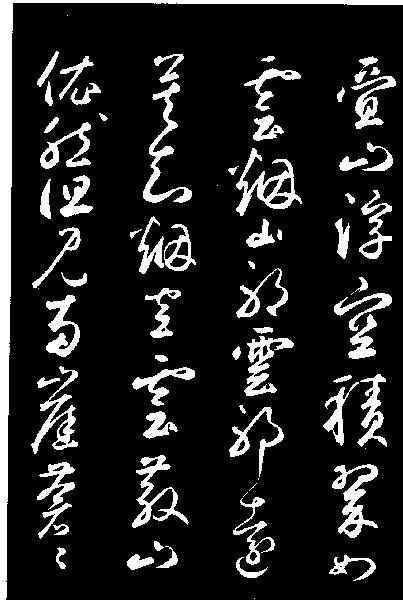 疊山浮空積翠如
雲烟山耶雲耶遠
莫知烟空雲散山
依然但見兩崖蒼々